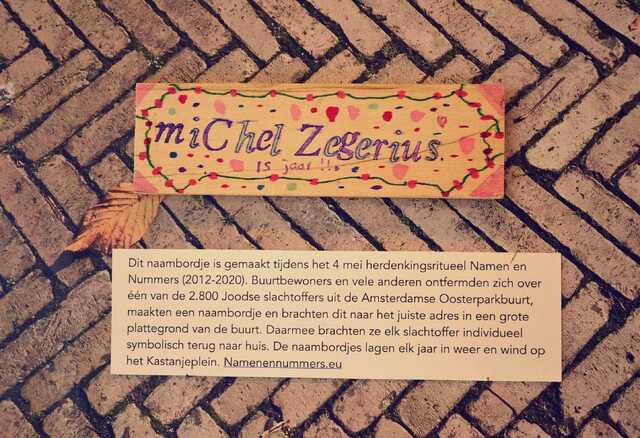 miChel Zegerius
15 jaar !!
Dit naambordje is gemaakt tijdens het 4 mei herdenkingsritueel Namen en
Nummers (2012-2020). Buurtbewoners en vele anderen ontfermden zich over
één van de 2.800 Joodse slachtoffers uit de Amsterdamse Oosterparkbuurt,
maakten een naambordje en brachten dit naar het juiste adres in een grote
plattegrond van de buurt. Daarmee brachten ze elk slachtoffer individueel
symbolisch terug naar huis. De naambordjes lagen elk jaar in weer en wind op
het Kastanjeplein. Namenennummers.eu